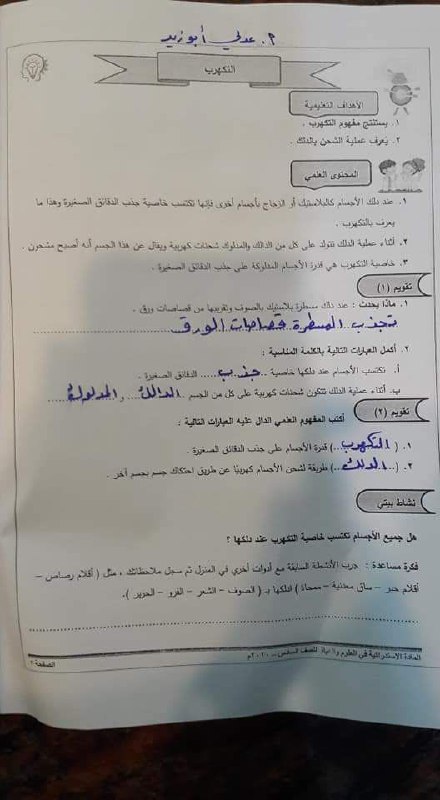 م. عدلي أبو زيد
التكهرب
الأهداف التعليمية
١. يستنتج مفهوم التكهرب .
٢. يعرف عملية الشحن بالدلك .
المحتوى العلمي
١. عند دلك الأجسام كالبلاستيك أو الزجاج بأجسام أخرى فإنها تكتسب خاصية جذب الدقائق الصغيرة وهذا ما
يعرف بالتكهرب .
٢. أثناء عملية الدلك تتولد على كل من الدالك والمدلوك شحنات كهربية ويقال عن هذا الجسم أنه أصبح مشحون .
٣. خاصية التكهرب هي قدرة الأجسام المدلوكة على جذب الدقائق الصغيرة .
تقويم (١)
١. ماذا يحدث : عند دلك مسطرة بلاستيك بالصوف وتقريبها من قصاصات ورق .
تجذب المسطرة قصاصات الورق
٢. أكمل العبارات التالية بالكلمة المناسبة :
أ. تكتسب الأجسام عند دلكها خاصية ..جذب.... الدقائق الصغيرة .
ب. أثناء عملية الدلك تتكون شحنات كهربية على كل من الجسم .الدالك... , .المدلوك..
تقويم (٢)
أكتب المفهوم العلمي الدال عليه العبارات التالية :
١. (..التكهرب..) قدرة الأجسام على جذب الدقائق الصغيرة .
٢. (..الدلك...) طريقة لشحن الأجسام كهربيًا عن طريق احتكاك جسم بجسم آخر .
نشاط بيتي
هل جميع الأجسام تكتسب خاصية التكهرب عند دلكها ؟
فكرة مساعدة : جرب الأنشطة السابقة مع أدوات أخري في المنزل ثم سجل ملاحظاتك ، مثل ( أقلام رصاص –
أقلام حبر – ساق معدنية – ممحاة ) ادلكها بـ ( الصوف – الشعر – الفرو – الحرير ).
المادة الاستدراكية في العلوم والحياة للصف السادس – ٢٠٢٠م
الصفحة ٢